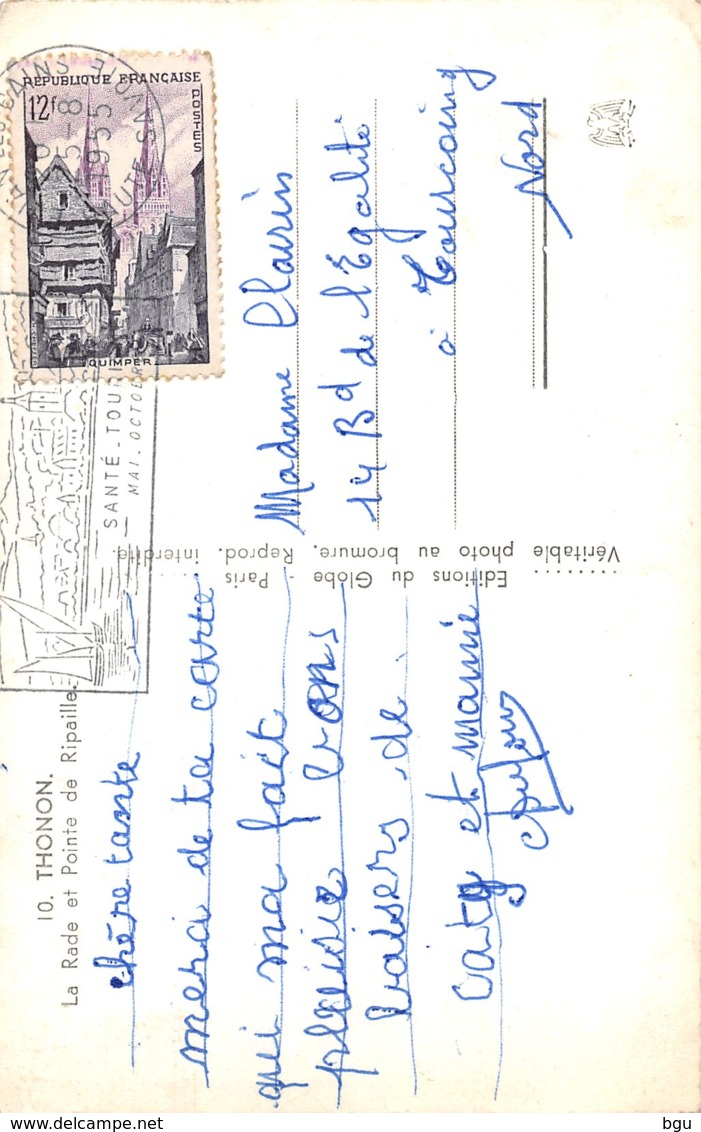 10. THONON.
La Rade et Pointe de Ripaille.
chère tante
merci de ta carte
qui ma fait
plaisir bons
baisers de
caty et mamie
Editions du Globe - Paris - Reprod. interdite.
Véritable photo au bromure.
REPUBLIQUE FRANÇAISE
POSTES
12F
QUIMPER
5-8
1955
SANTÉ - TOURI
MAI. OCTOBR
Madame Clarin
14 Bd de l'Egalité
à Tourcoing
Nord
bgu